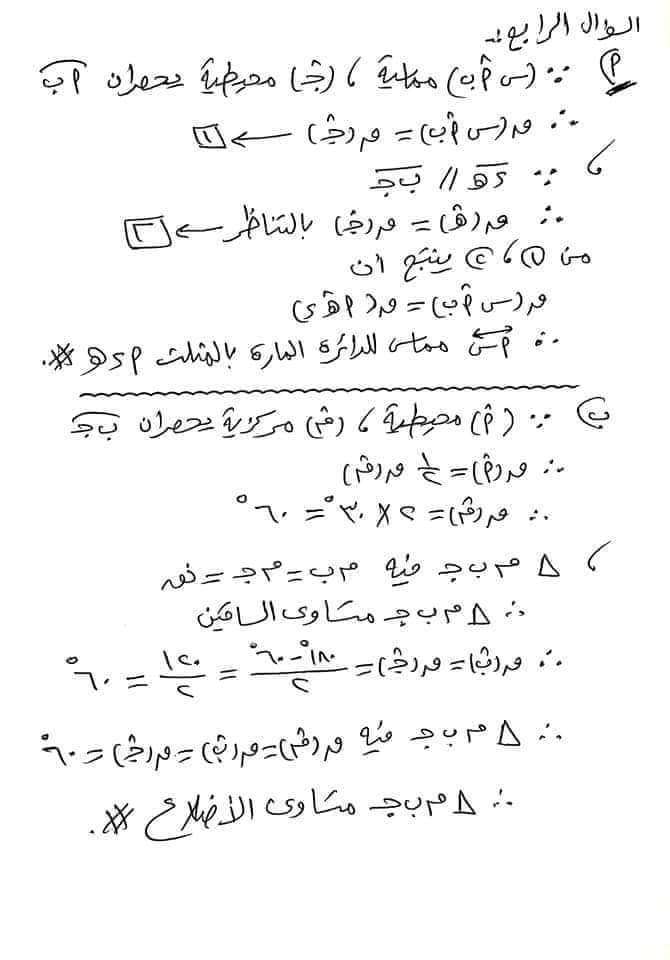 السؤال الرابع:ـ
(P) ∵ (س P̂ ب) مماسية ، (جـ̂) محيطية يحصران P̅ب̅
∴ ق(س P̂ ب) = ق(جـ̂) ← [١]
، ∵ د̅هـ̅ // ب̅جـ̅
∴ ق(هـ̂) = ق(جـ̂) بالتناظر ← [٢]
من (١) ، (٢) ينتج أن
ق(س P̂ ب) = ق(P هـ̂ د)
∴ P س↔ مماس للدائرة المارة بالمثلث P د هـ #.
(ب) ∵ (P̂) محيطية ، (م̂) مركزية يحصران ب̅جـ̅
∴ ق(P̂) = ½ ق(م̂)
∴ ق(م̂) = ٢ × ٣٠° = ٦٠°
، Δ م ب جـ فيه م ب = م جـ = نق
∴ Δ م ب جـ متساوى الساقين
∴ ق(ب̂) = ق(جـ̂) = (١٨٠° - ٦٠°)/٢ = ١٢٠/٢ = ٦٠°
∴ Δ م ب جـ فيه ق(م̂) = ق(ب̂) = ق(جـ̂) = ٦٠°
∴ Δ م ب جـ متساوى الأضلاع #.